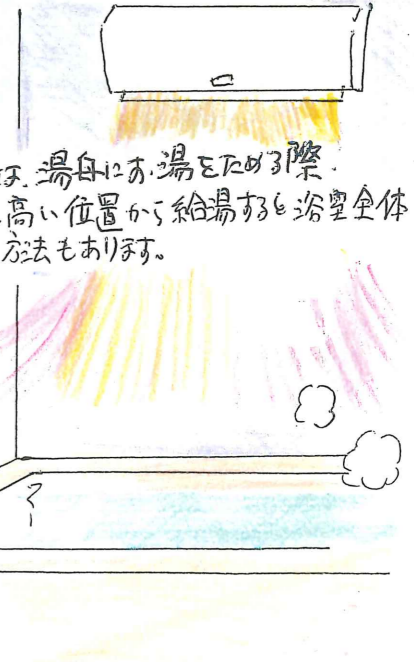 は、湯舟にお湯をためる際
高い位置から給湯すると浴室全体
方法もあります。